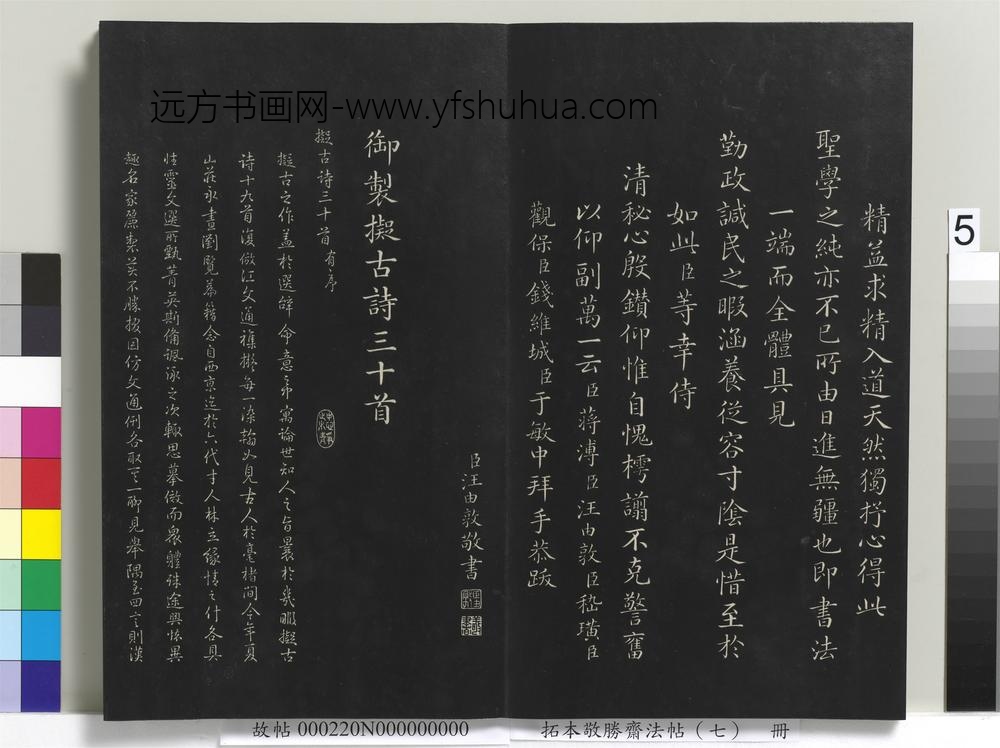 远方书画网-www.yfshuhua.com
5
精益求精入道天然獨抒心得此
聖學之純亦不已所由日進無疆也即書法
一端而全體具見
勤政諴民之暇涵養從容寸陰是惜至於
如此臣等幸侍
清秘心殷鑽仰惟自愧樗譾不克警奮
以仰副萬一云臣蔣溥臣汪由敦臣嵇璜臣
觀保臣錢維城臣于敏中拜手恭跋
臣汪由敦敬書
御製擬古詩三十首
擬古詩三十首有序
擬古之作蓋於選辭命意之中寓論世知人之旨曩於幾暇擬古
詩十九首復倣江文通雜擬每一染翰如見古人於毫楮間今年夏
山莊永晝瀏覽蕭籍念自西京迄於六代才人林立緣情之什各具
性靈文選所甄菁英斯備諷泳之次輒思摹倣而眾體殊途興懷異
趣名家鴻製美不勝掇因仿文通例各取其一聊見舉隅至四言則漢
故帖000220N000000000
拓本敬勝齋法帖（七） 冊